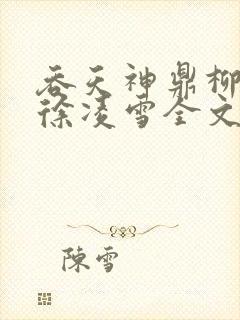 吞天神鼎柳
徐凌雪全文
陈雪